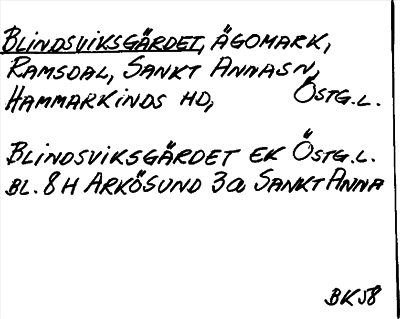 BLINDSVIKSGÄRDET, ÄGOMARK,
RAMSDAL, SANKT ANNA SN,
HAMMARKINDS HD, ÖSTG.L.
BLINDSVIKSGÄRDET EK ÖSTG.L.
BL. 8H ARKÖSUND 3a SANKT ANNA
BK58